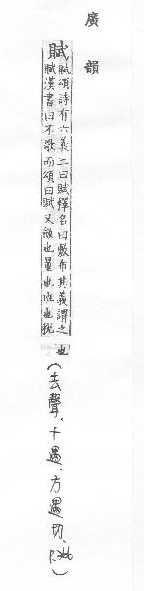 廣韻
賦 賦頌詩有六義二曰賦釋名曰敷布其義謂之
賦漢書曰不歌而頌曰賦又斂也量也班也稅
也
(去聲、十遇、方遇切、P.366)